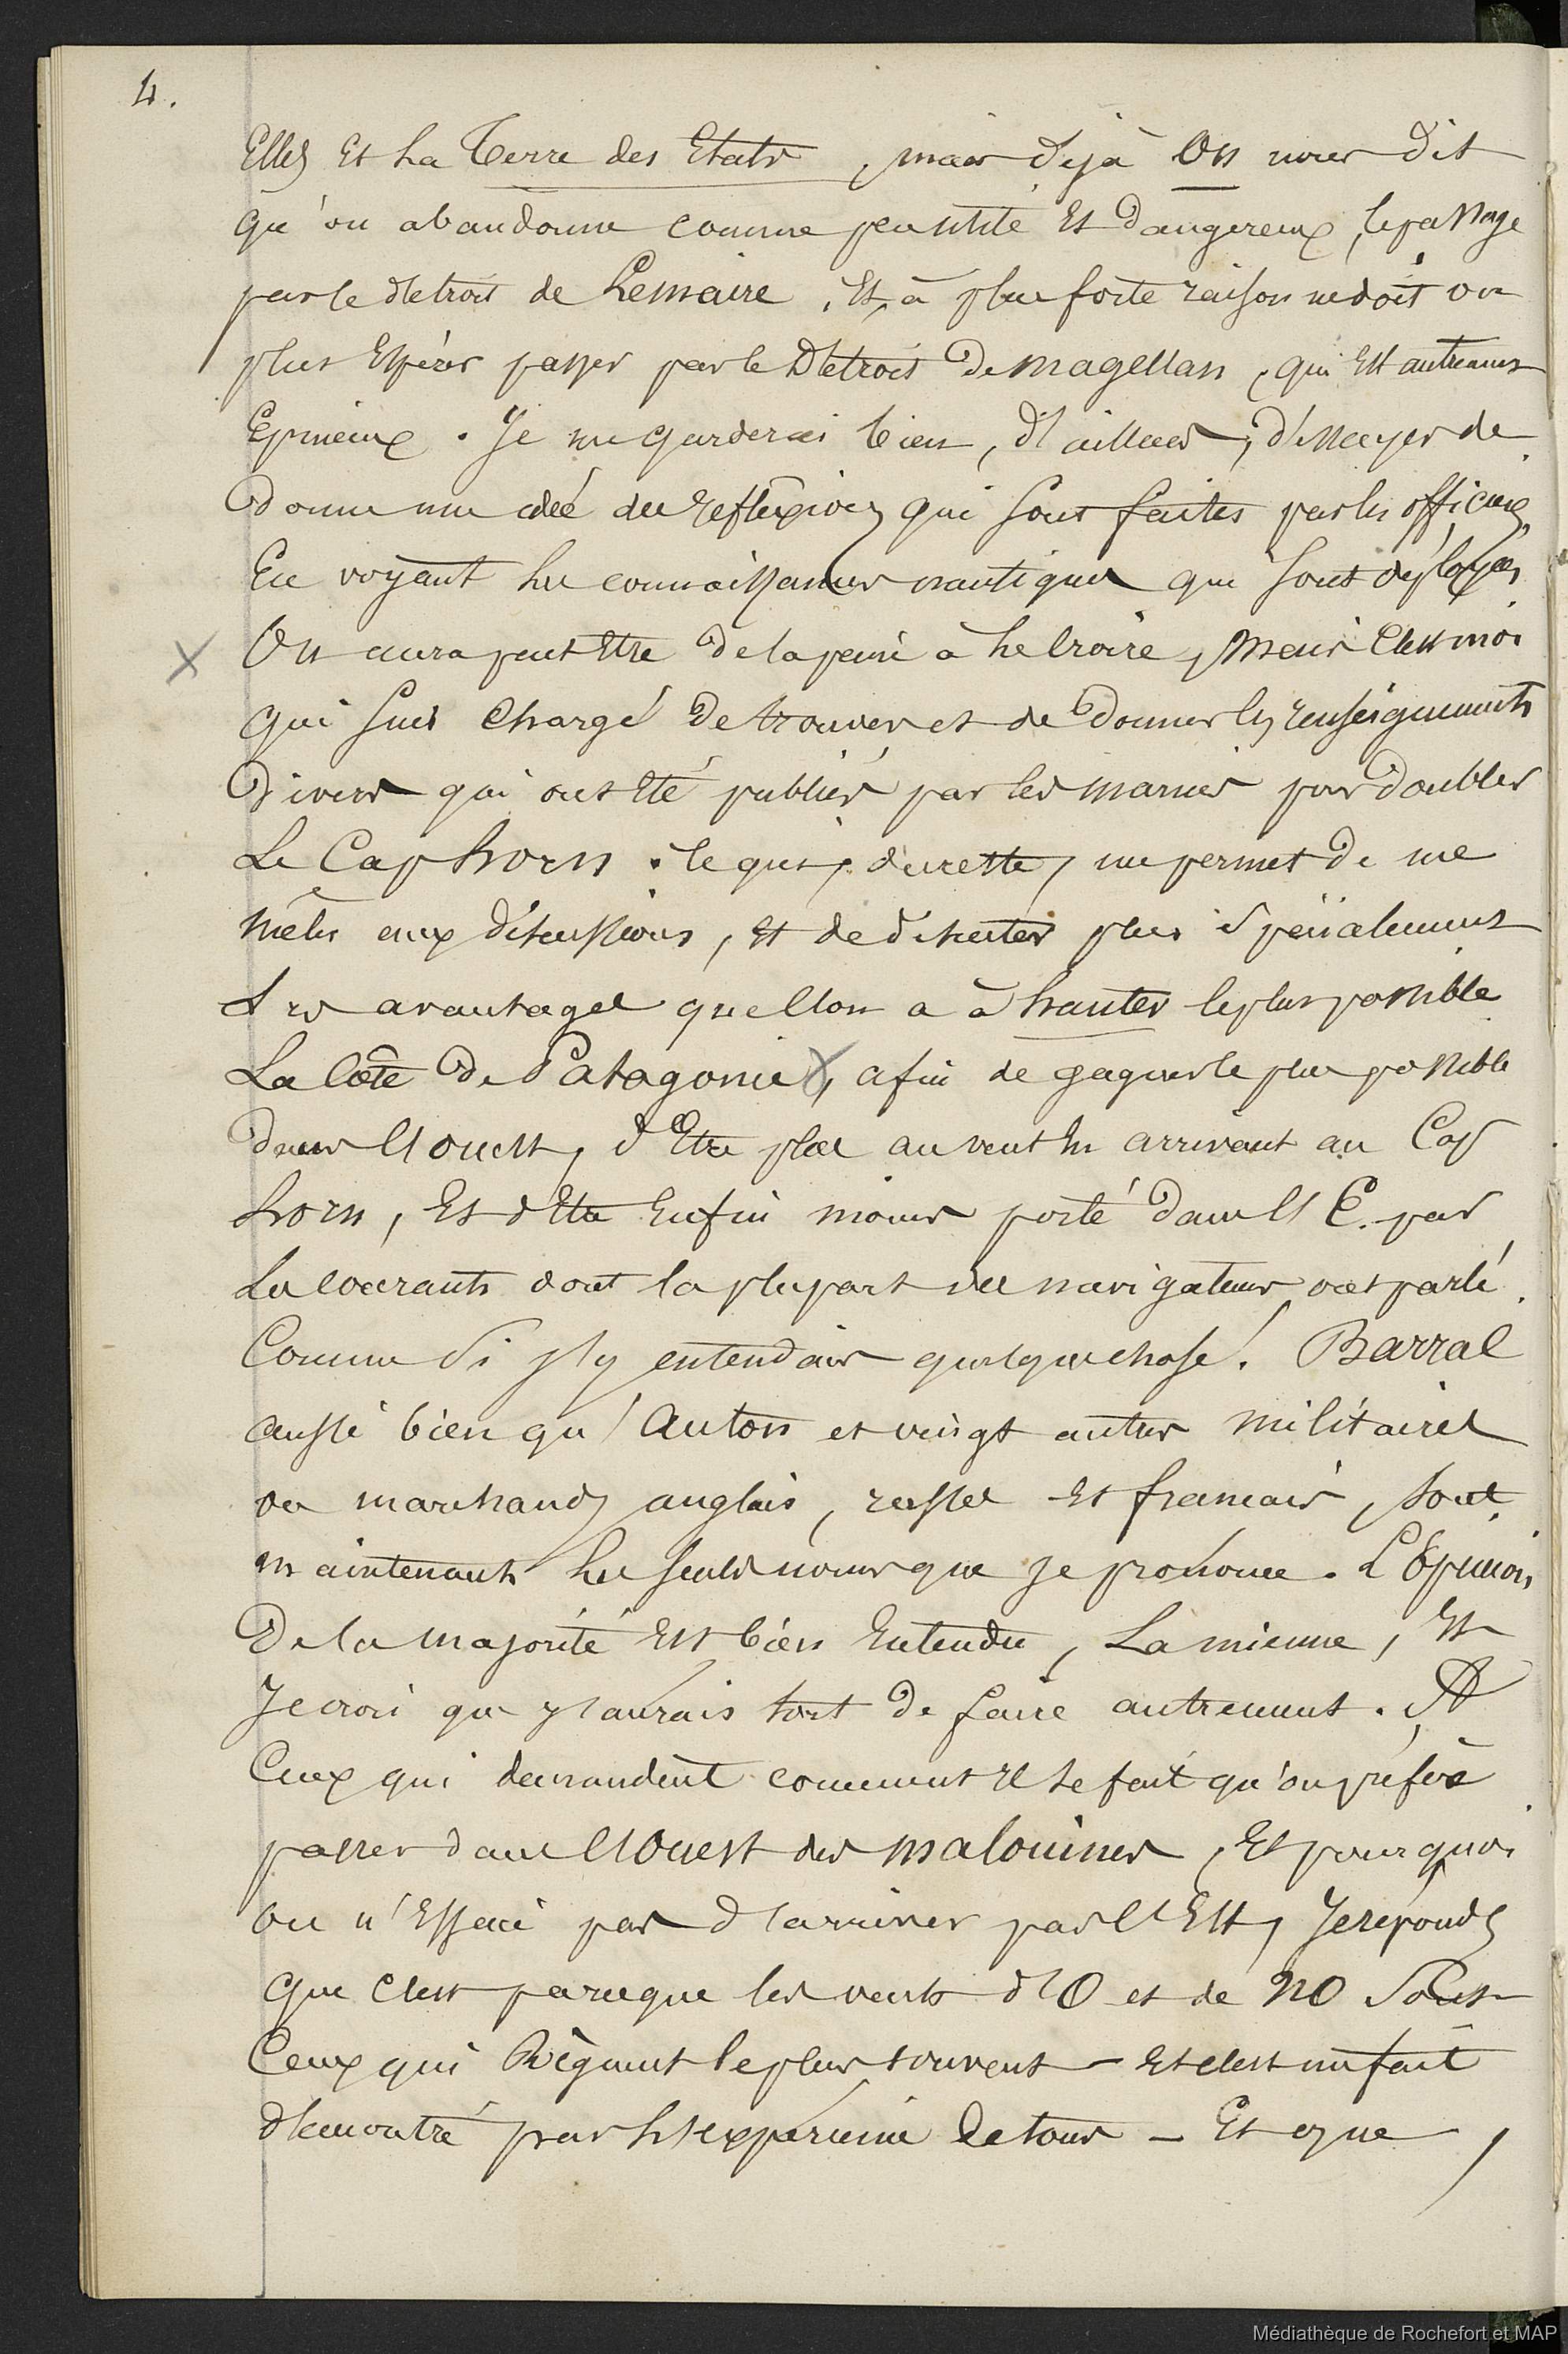 4.
Elles et la Terre des Etats, mais déjà On nous dit
qu'on abandonne comme peu utile et dangereux, le passage
par le detroit de Lemaire, et, à plus forte raison ne doit on
plus espérer passer par le Détroit de Magellan, qui est autrement
Epineux. Je me garderai bien, d'ailleurs, d'essayer de
donner une idée des reflexions qui sont faites par les officiers,
En voyant les connaissances nautiques qui sont deployées
On aura peut être de la peine à le croire, mais c'est moi
qui suis chargé de trouver et de donner les renseignements
divers qui ont été publiés par les marins pour doubler
Le Cap horn. ce qui, du reste, me permet de me
mêler aux discussions, et de discuter plus spécialement
Les avantages que l'on a à hanter le plus possible
La Côte de Patagonie, afin de gagner le plus possible
dans l'Ouest, d'être plus au vent en arrivant au Cap
horn, et d'être enfin moins porté dans l'E. par
les courants dont la plupart des navigateurs ont parlé.
Comme si j'y entendais quelque chose! Barral
aussi bien qu'Anson et vingt autres militaires
ou marchands anglais, russes et francais, sont
maintenant les seuls noms que je prononce. L'Opinion
De la majorité est bien entendu, La mienne, et
Je crois que j'aurais tort de faire autrement. A
Ceux qui demandent comment il se fait qu'on préfère
passer dans l'Ouest des malouines, et pourquoi
on n'Essaie pas d'arriver par l'Est, Je réponds
que c'est parceque les vents d'O et de NO sont
Ceux qui Règnent le plus souvent - et c'est un fait
démontré par l'expérience de tous - et que
Médiathèque de Rochefort et MAP